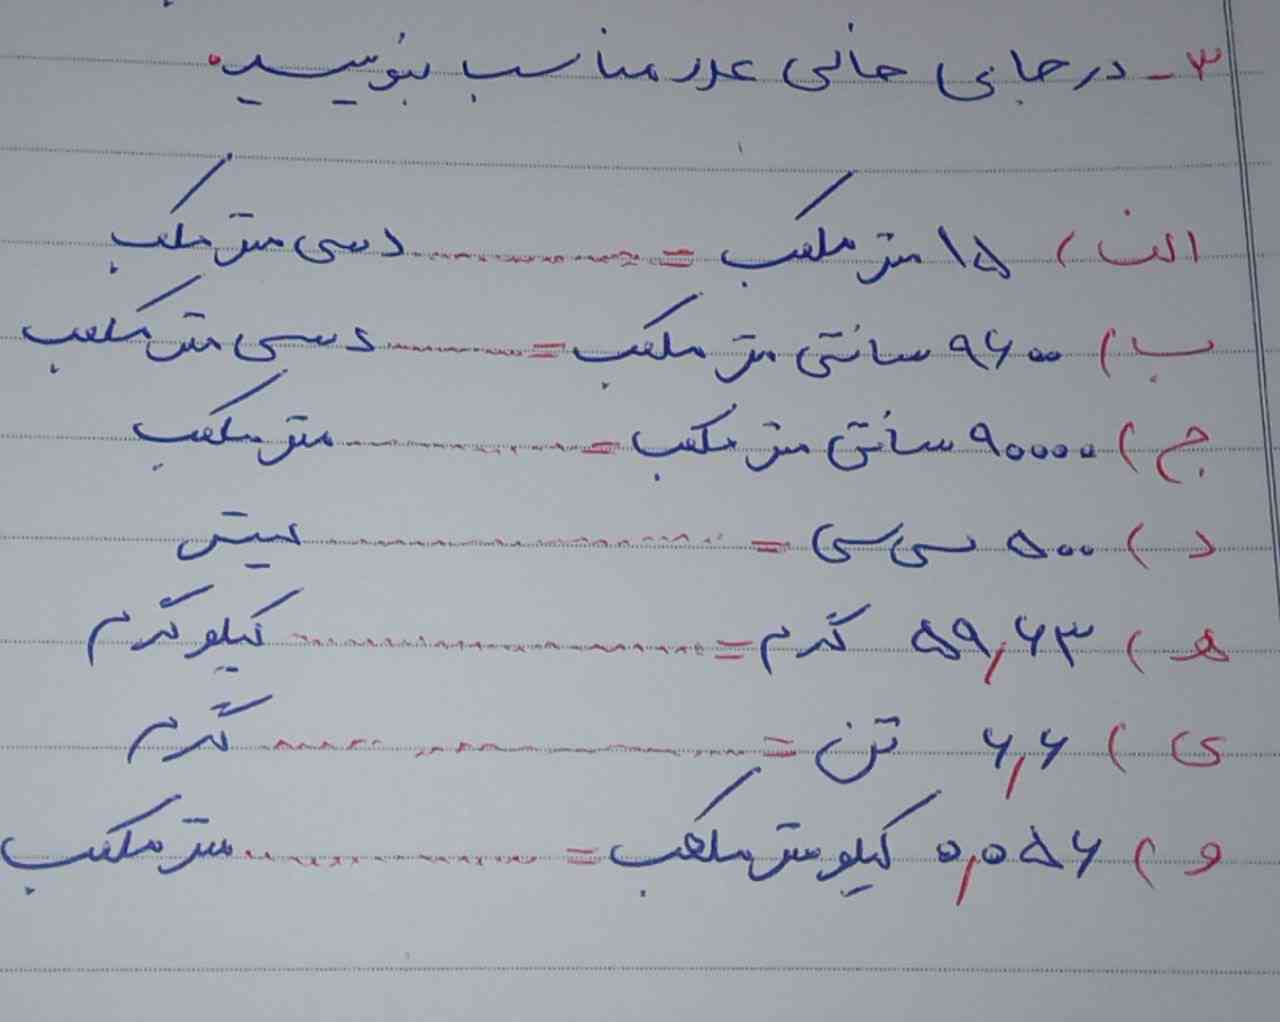 ۳- در جای خالی عدد مناسب بنویسید.
الف) ۱۵ متر مکعب = ........ دسی متر مکعب
ب) ۹۶۰۰ سانتی متر مکعب = ........ دسی متر مکعب
ج) ۹۰۰۰۰ سانتی متر مکعب = ........ متر مکعب
د) ۵۰۰ سی سی = ........ لیتر
هـ) ۵۹,۶۳ گرم = ........ کیلوگرم
ی) ۶,۶ تن = ........ گرم
و) ۰,۰۵۶ کیلومتر مکعب = ........ متر مکعب